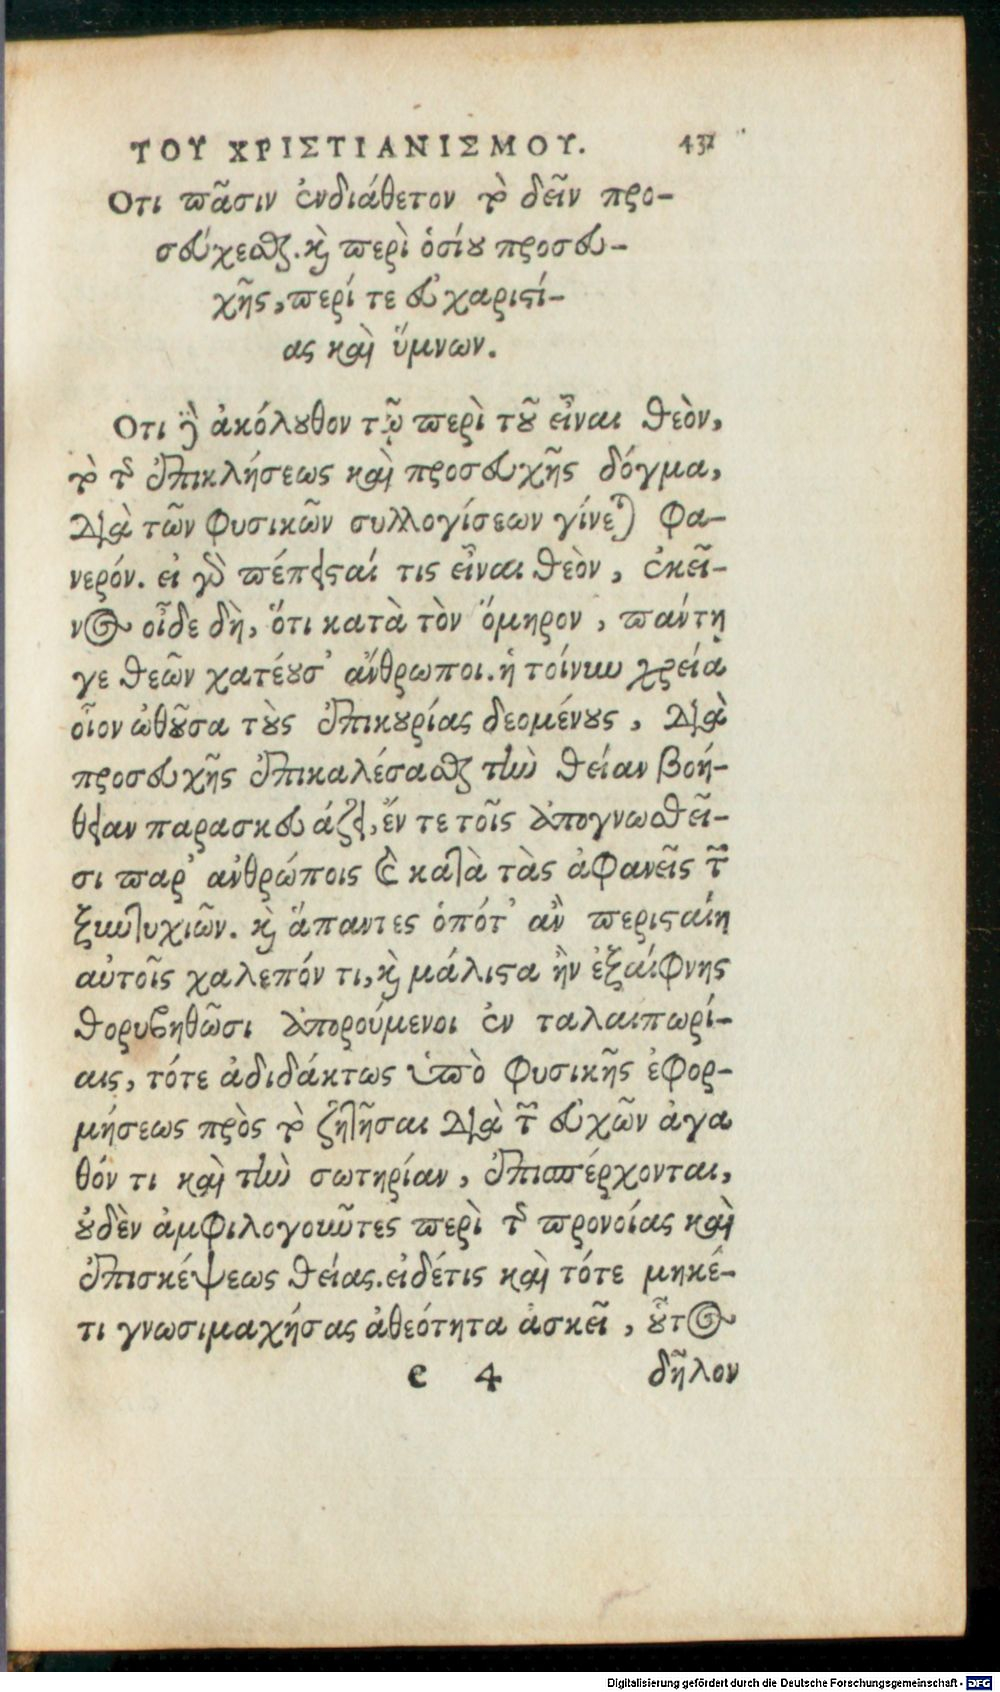 ΤΟΥ ΧΡΙΣΤΙΑΝΙΣΜΟΥ. 437
Οτι πᾶσιν ἐνδιάθετον τὸ δεῖν προ-
σεύχεσθαι. καὶ περὶ ὁσίου προσευ-
χῆς, περί τε εὐχαριστί-
ας καὶ ὕμνων.
Οτι ἢ ἀκόλουθον τῷ περὶ τοῦ εἶναι θεὸν,
τὸ τῆς ἐπικλήσεως καὶ προσευχῆς δόγμα,
διὰ τῶν φυσικῶν συλλογίσεων γίνεται φα-
νερόν. εἰ γὰρ πέπεισαί τις εἶναι θεὸν, ἐκεῖ-
νος οἶδε δὴ, ὅτι κατὰ τὸν ὅμηρον, πάντη
γε θεῶν χατέουσ᾽ ἄνθρωποι. ἡ τοίνυν χρεία
οἷον ὠθοῦσα τοὺς ἐπικουρίας δεομένους, διὰ
προσευχῆς ἐπικαλέσασθαι τὴν θείαν βοή-
θειαν παρασκευάζει, ἔν τε τοῖς ἀπογνωσθεῖ-
σι παρ᾽ ἀνθρώποις καὶ κατὰ τὰς ἀφανεῖς τῶν
ξυντυχιῶν. καὶ ἅπαντες ὁπότ᾽ ἂν περισταίη
αὐτοῖς χαλεπόν τι, καὶ μάλιστα ἢν ἐξαίφνης
θορυβηθῶσι ἀπορούμενοι ἐν ταλαιπωρί-
αις, τότε ἀδιδάκτως ὑπὸ φυσικῆς ἐφορ-
μήσεως πρὸς τὸ ζητῆσαι διὰ τῶν εὐχῶν ἀγα
θόν τι καὶ τὴν σωτηρίαν, ἐπισπέρχονται,
οὐδὲν ἀμφιλογοῦντες περὶ τῆς προνοίας καὶ
ἐπισκέψεως θείας. εἰδέτις καὶ τότε μηκέ-
τι γνωσιμαχήσας ἀθεότητα ἀσκεῖ, οὗτος
e 4 δῆλον
Digitalisierung gefördert durch die Deutsche Forschungsgemeinschaft - DFG